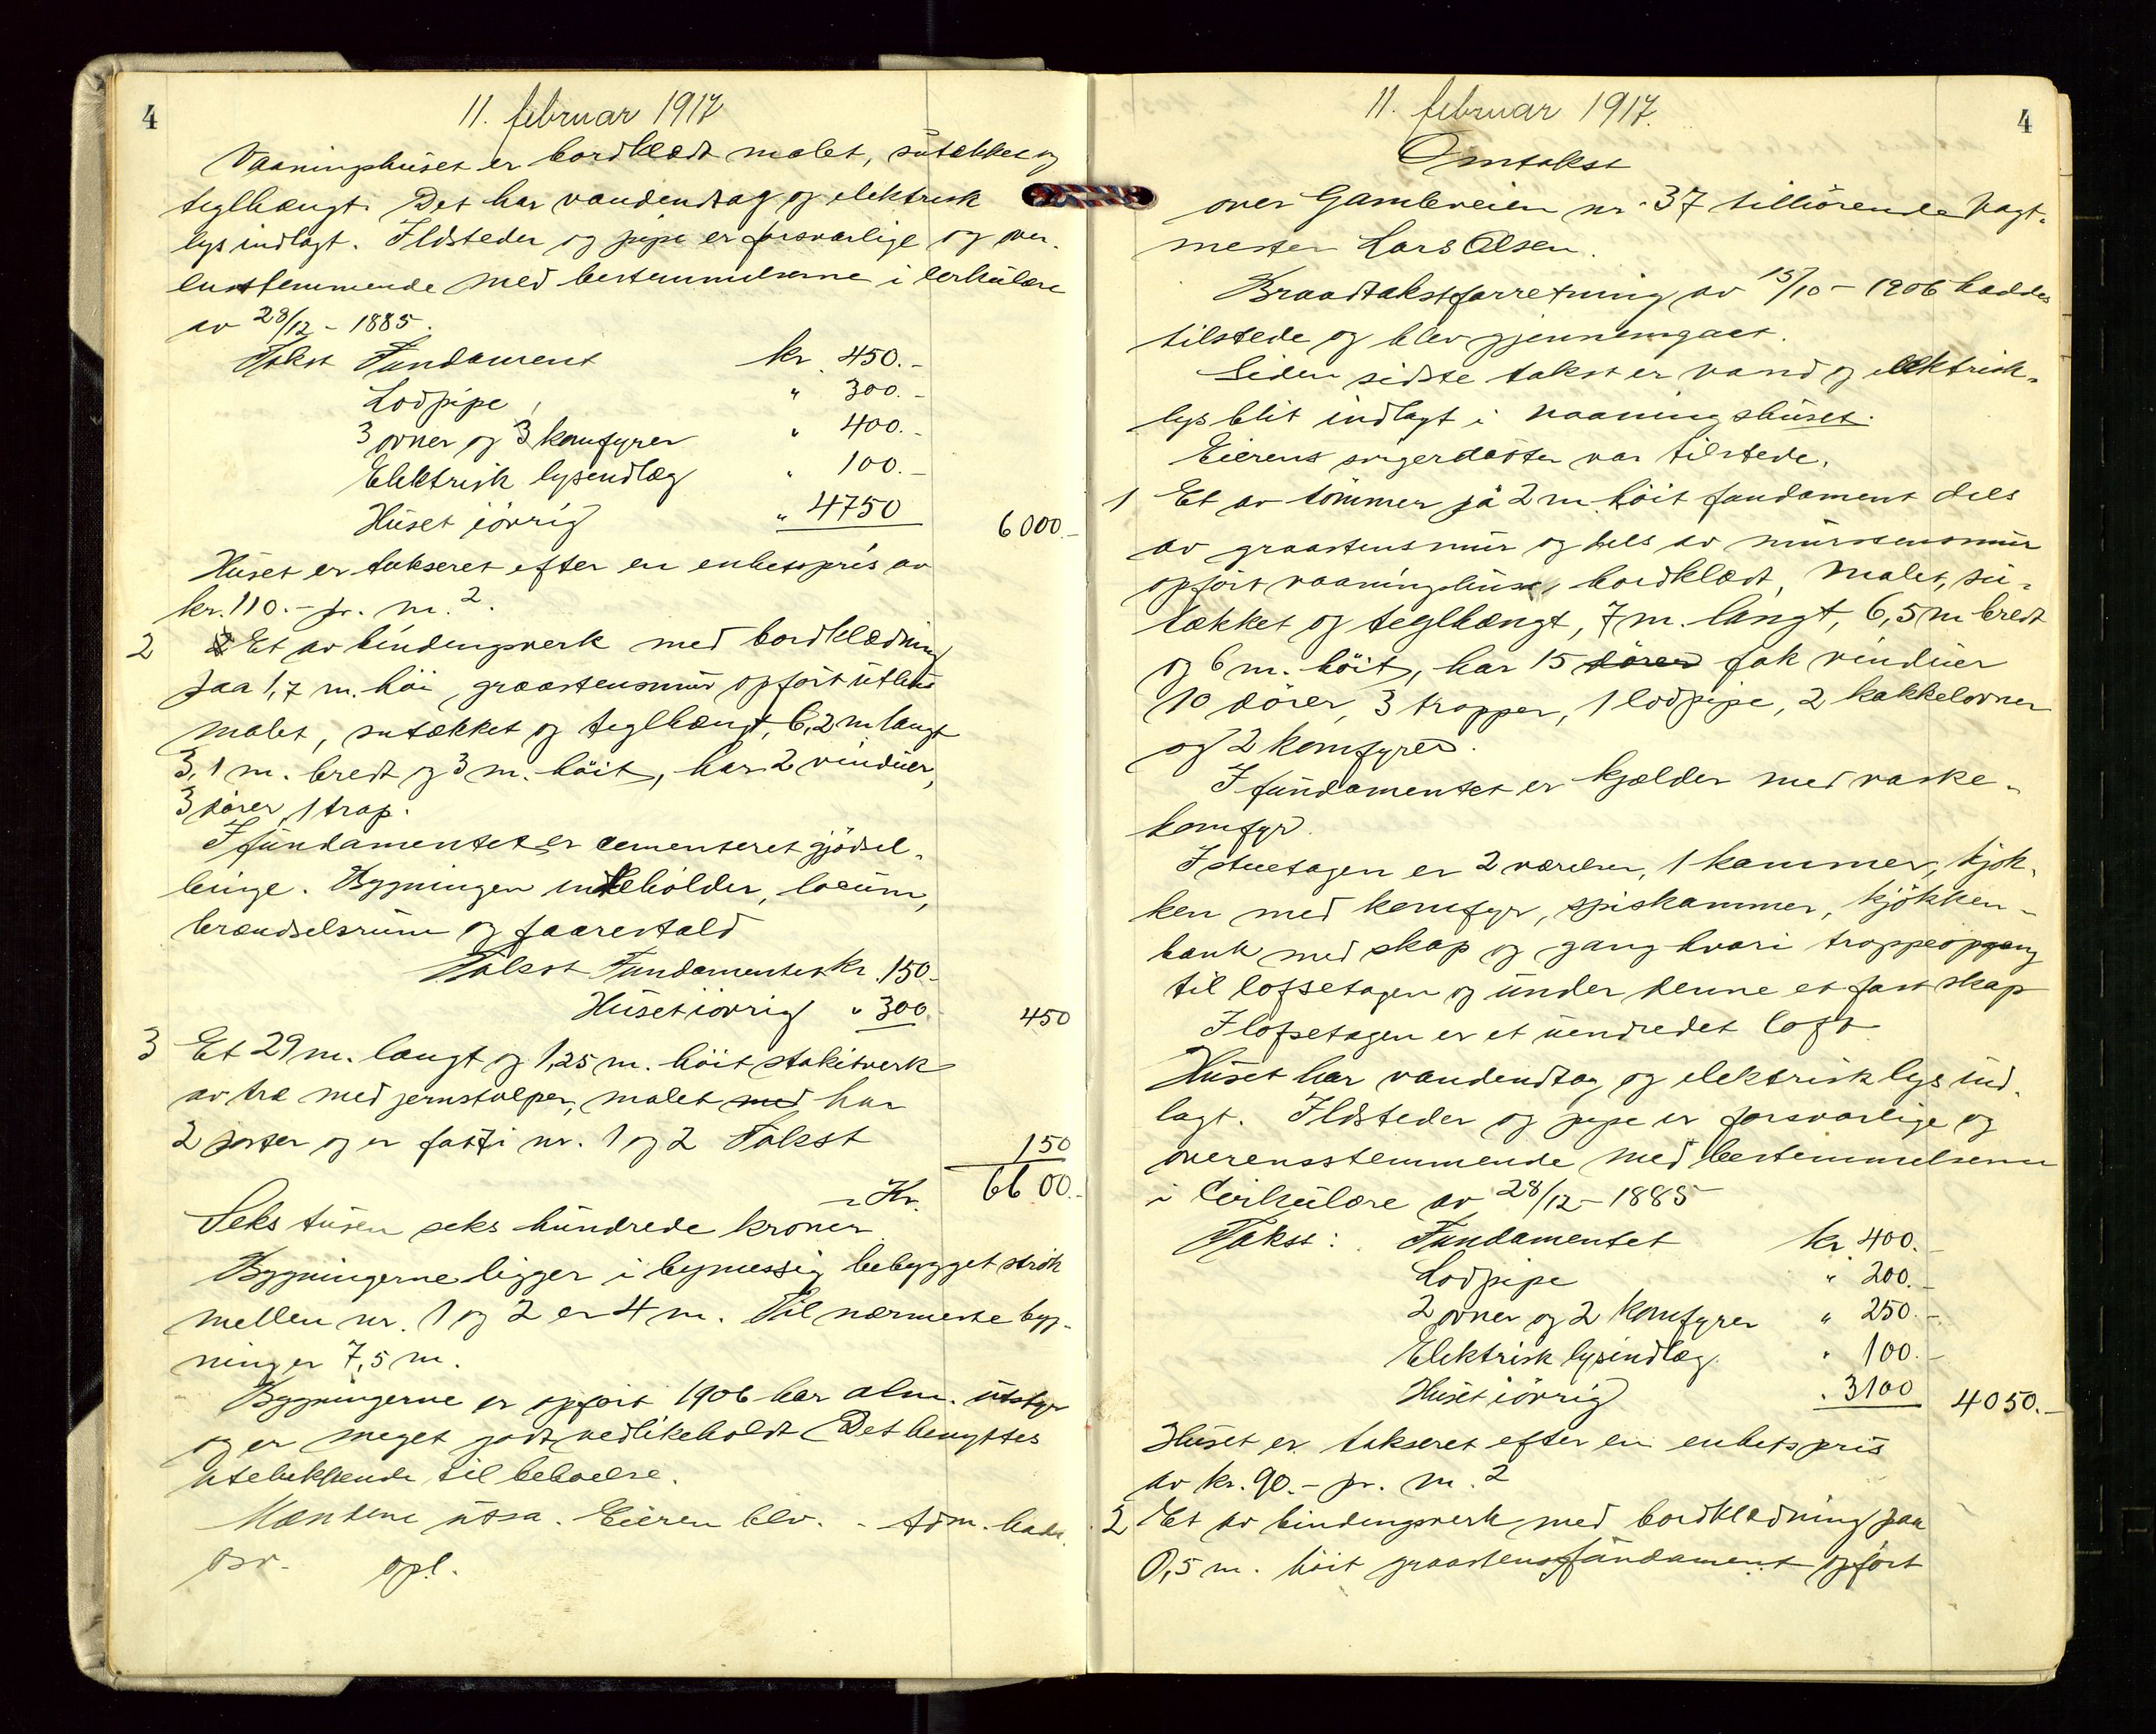 4
11. februar 1917
Vaaningshuset er bordklædt malet, sutækket og
teglhængt. Det har vandindtag og elektrisk
lys indlagt. Ildsteder og pipe er forsvarlige og over-
ensstemmende med bestemmelserne i cerkulære
av 28/12 - 1885.
Takst Fundament kr. 450.-
Lodpipe " 300.-
3 ovner og 3 komfyrer " 400.-
Elektrisk lysindlæg " 100.-
Huset iøvrig " 4750 6000.-
Huset er takseret efter en enhetspris av
kr. 110.- pr. m.2.
2 Et av bindingsverk med bordklædning
paa 1,7 m. høi, graastensmur opført uthus
malet, sutækket og teglhængt, 6,2 m langt
3,1 m. bredt og 3 m. høit, har 2 vinduer,
3 dører, 1 trap.
I fundamentet er cementeret gjødsel-
binge. Bygningen indeholder, locum,
brændselsrum og faarestald
Takst Fundamentet kr. 150.-
Huset iøvrig " 300.- 450
3 Et 29 m. langt og 1,25 m. høit stakitverk
av træ med jernstolper, malet med har
2 porter og er fast i nr. 1 og 2 Takst 150
Kr. 6600.-
Seks tusen seks hundrede kroner
Bygningerne ligger i bymessig bebygget strøk
mellem nr. 1 og 2 er 4 m. Til nærmeste byg-
ning er 7,5 m.
Bygningerne er opført 1906 har alm. utstyr
og er meget godt vedlikeholdt. Det benyttes
utelukkende til beboelse.
Mændene utsa. Eieren blev. - Adm. hadde.
osv. opl.
4
11. februar 1917.
Omtakst
over Gamleveien nr. 37 tilhørende Vagt-
mester Lars Olsen.
Brandtakstforretning av 15/10 - 1906 haddes
tilstede og blev gjennemgaaet.
Siden sidste takst er vand og elektrisk-
lys blit indlagt i vaaningshuset.
Eierens svigerdatter var tilstede.
1 Et av tømmer på 2 m. høit fundament dels
av graastensmur og dels av murstensmur
opført vaaningshus, bordklædt, malet, su-
tækket og teglhængt, 7 m. langt, 6,5 m bredt
og 6 m. høit, har 15 dører fak vinduer
10 dører, 3 trapper, 1 lodpipe, 2 kakkelovner
og 2 komfyrer.
I fundamentet er kjælder med vaske-
komfyr.
I stueetagen er 2 værelser, 1 kammer, kjøk-
ken med komfyr, spiskammer, kjøkken-
bænk med skap og gang hvori trappeopgang
til loftsetagen og under denne et fast skap
I loftsetagen er et uindredet loft.
Huset har vandindtag og elektrisk lys ind-
lagt. Ildsteder og pipe er forsvarlige og
overensstemmende med bestemmelserne
i Cirkulære av 28/12 - 1885
Takst: Fundamentet kr. 400.-
Lodpipe " 200.-
2 ovner og 2 komfyrer " 250.-
Elektrisk lysindlæg. " 100.-
Huset iøvrig " 3100 4050.-
Huset er takseret efter en enhetspris
av kr. 90.- pr. m.2
2 Et av bindingsverk med bordklædning paa
0,5 m. høit graastensfundament opført